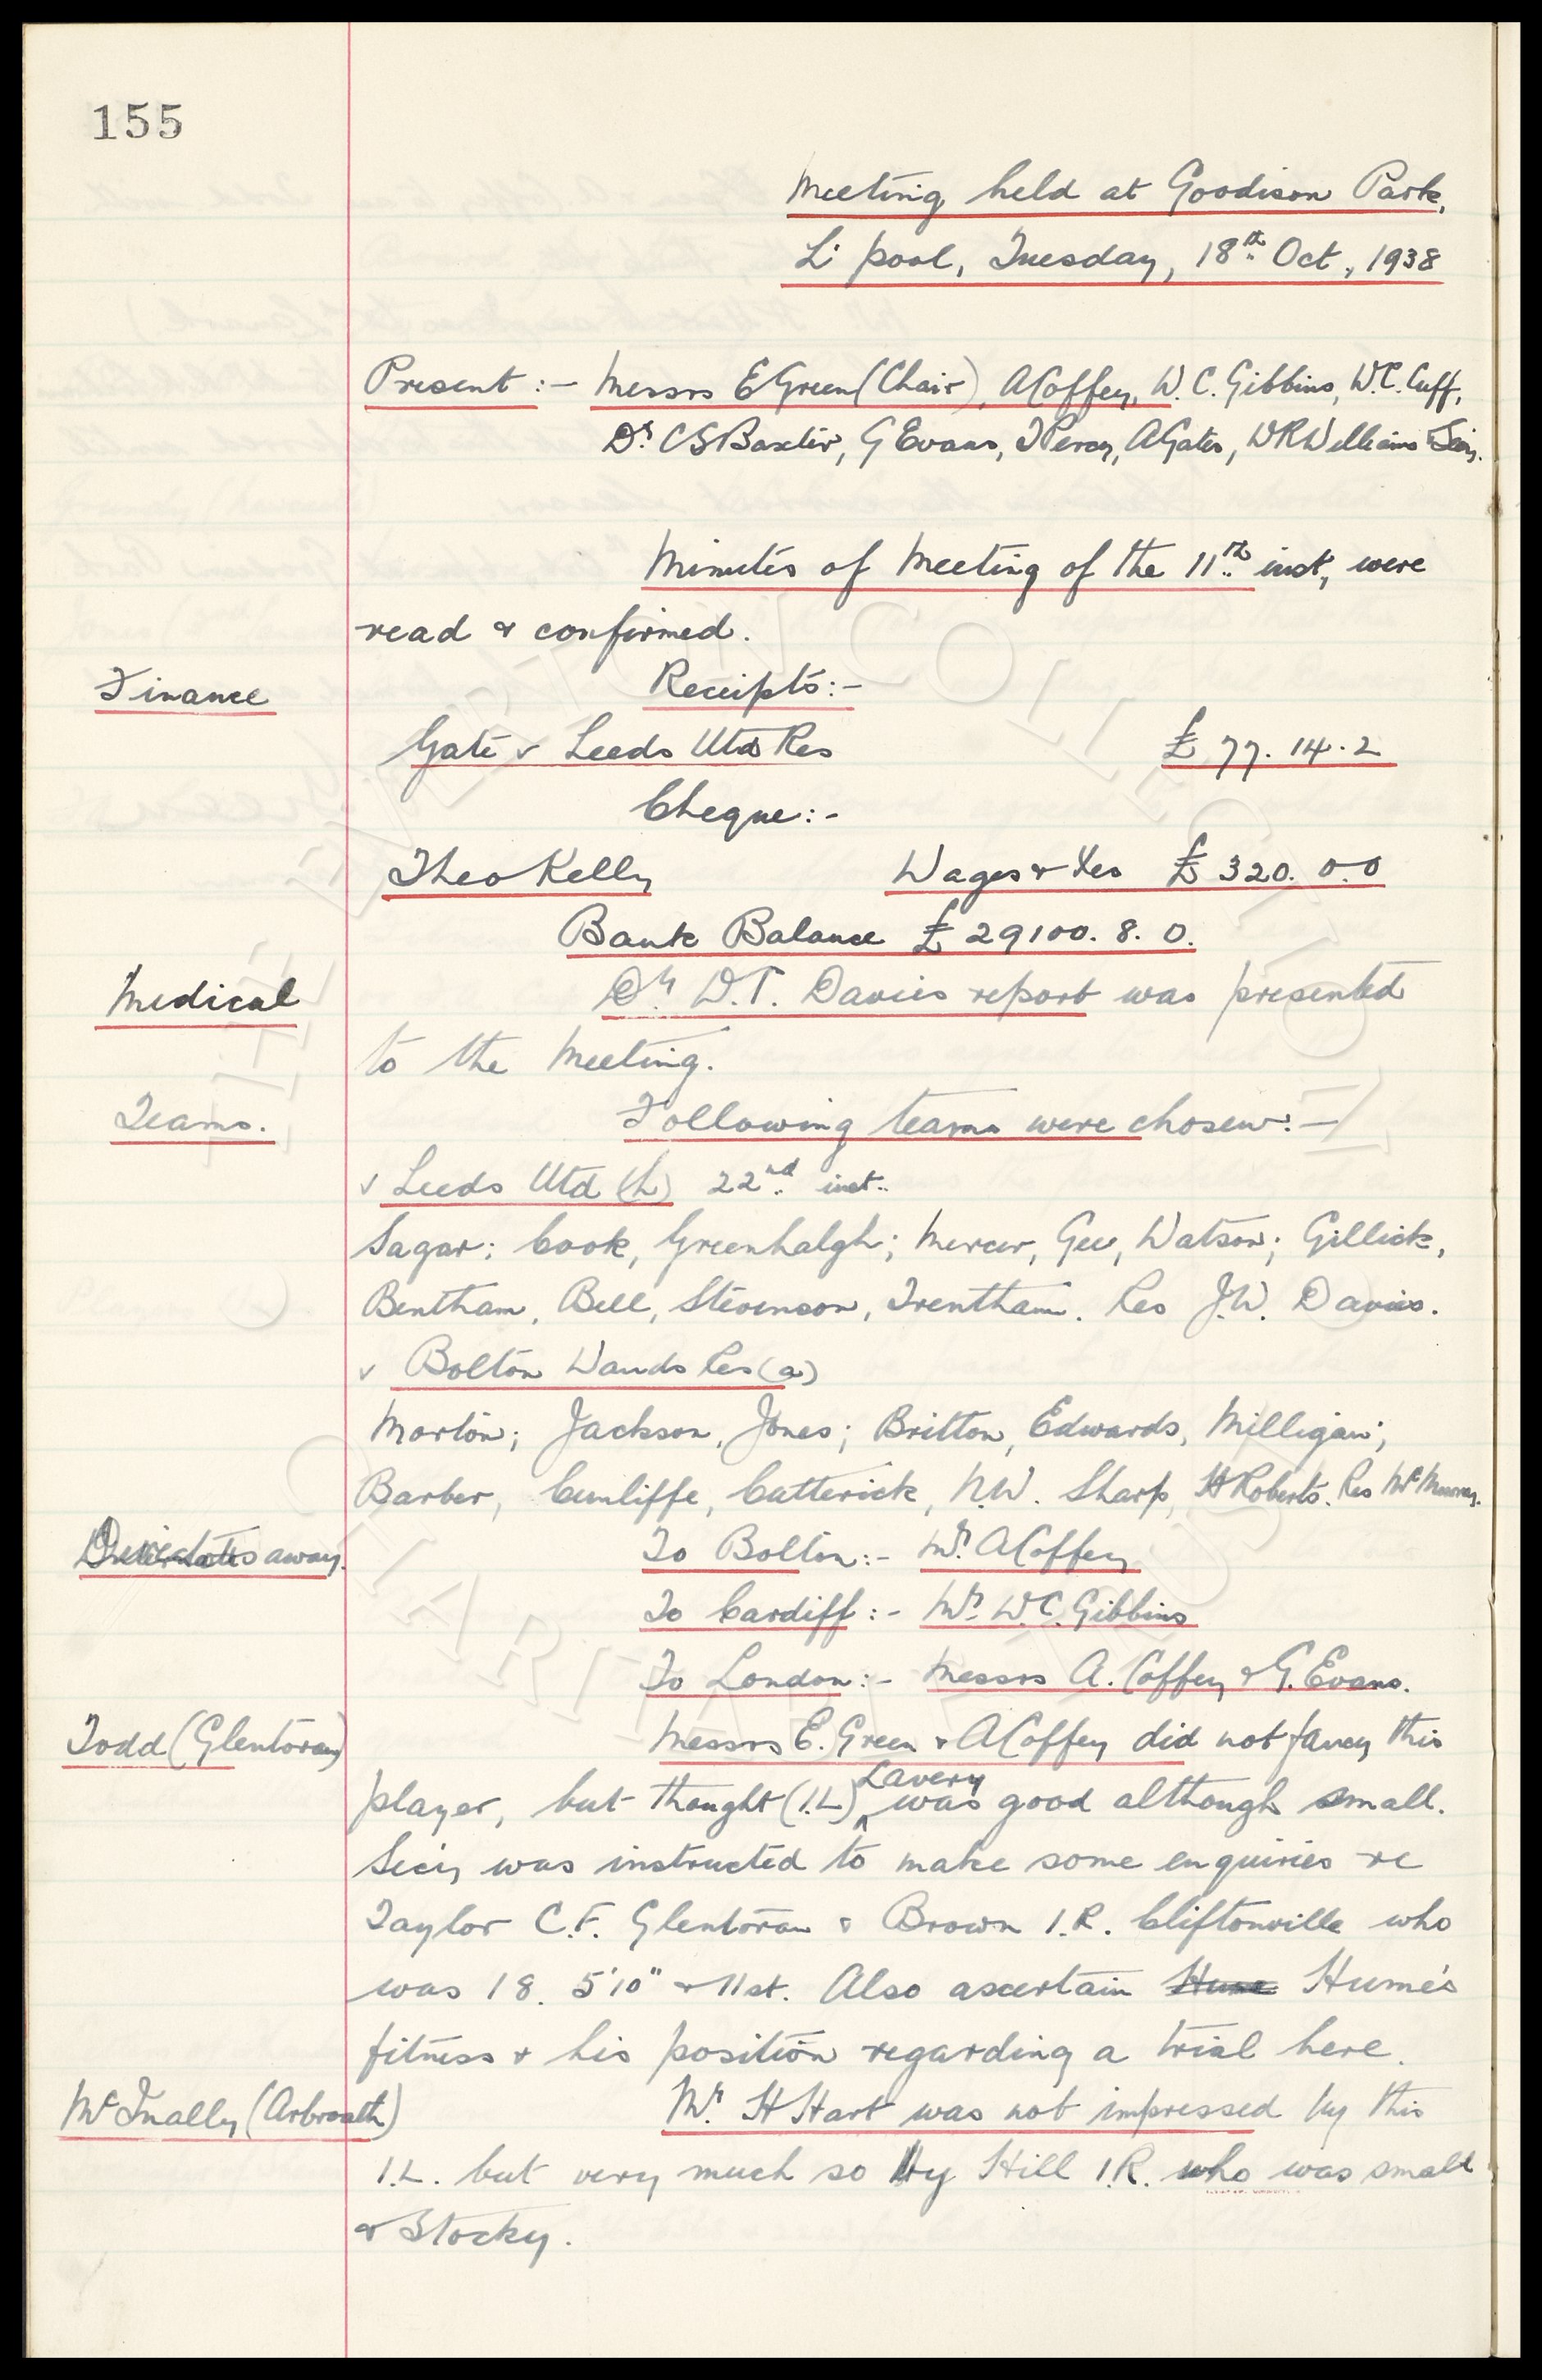 155
Meeting held at Goodison Park,
L'pool, Tuesday, 18th Oct., 1938
Present :- Messrs E Green (Chair), A Coffey, W. C. Gibbins, W. C. Cuff,
Dr C S Baxter, G Evans, T Percy, A Gates, W R Williams &
Minutes of Meeting of the 11th inst, were
read & confirmed.
Finance
Receipts:-
Gate v Leeds Utd Res £ 77. 14. 2
Cheque:-
Theo Kelly Wages & Xes £ 320. 0. 0
Bank Balance £ 29100. 8. 0.
Medical
Dr D. T. Davies report was presented
to the Meeting.
Teams.
Following teams were chosen:-
v Leeds Utd (h) 22nd inst.
Sagar; Cook, Greenhalgh; Mercer, Gee, Watson; Gillick,
Bentham, Bell, Stevenson, Trentham. Res J. W. Davies.
v Bolton Wands Res (a)
Morton; Jackson, Jones; Britton, Edwards, Milligan;
Barber, Cunliffe, Catterick, N. W. Sharp, H Roberts. Res McMurray.
away.
To Bolton:- Mr A Coffey
To Cardiff:- Mr W. C. Gibbins
To London:- Messrs A. Coffey & G. Evans.
Todd (Glentoran)
Messrs E. Green & A Coffey did not fancy this
player, but thought (I.L) Lavery was good although small.
Secy was instructed to make some enquiries re
Taylor C.F. Glentoran & Brown I.R. Cliftonville who
was 18. 5'10" & 11st. Also ascertain Hume Hume's
fitness & his position regarding a trial here.
McInally (Arbroath)
Mr H Hart was not impressed by this
I.L. but very much so by Hill I.R. who was small
& Stocky.